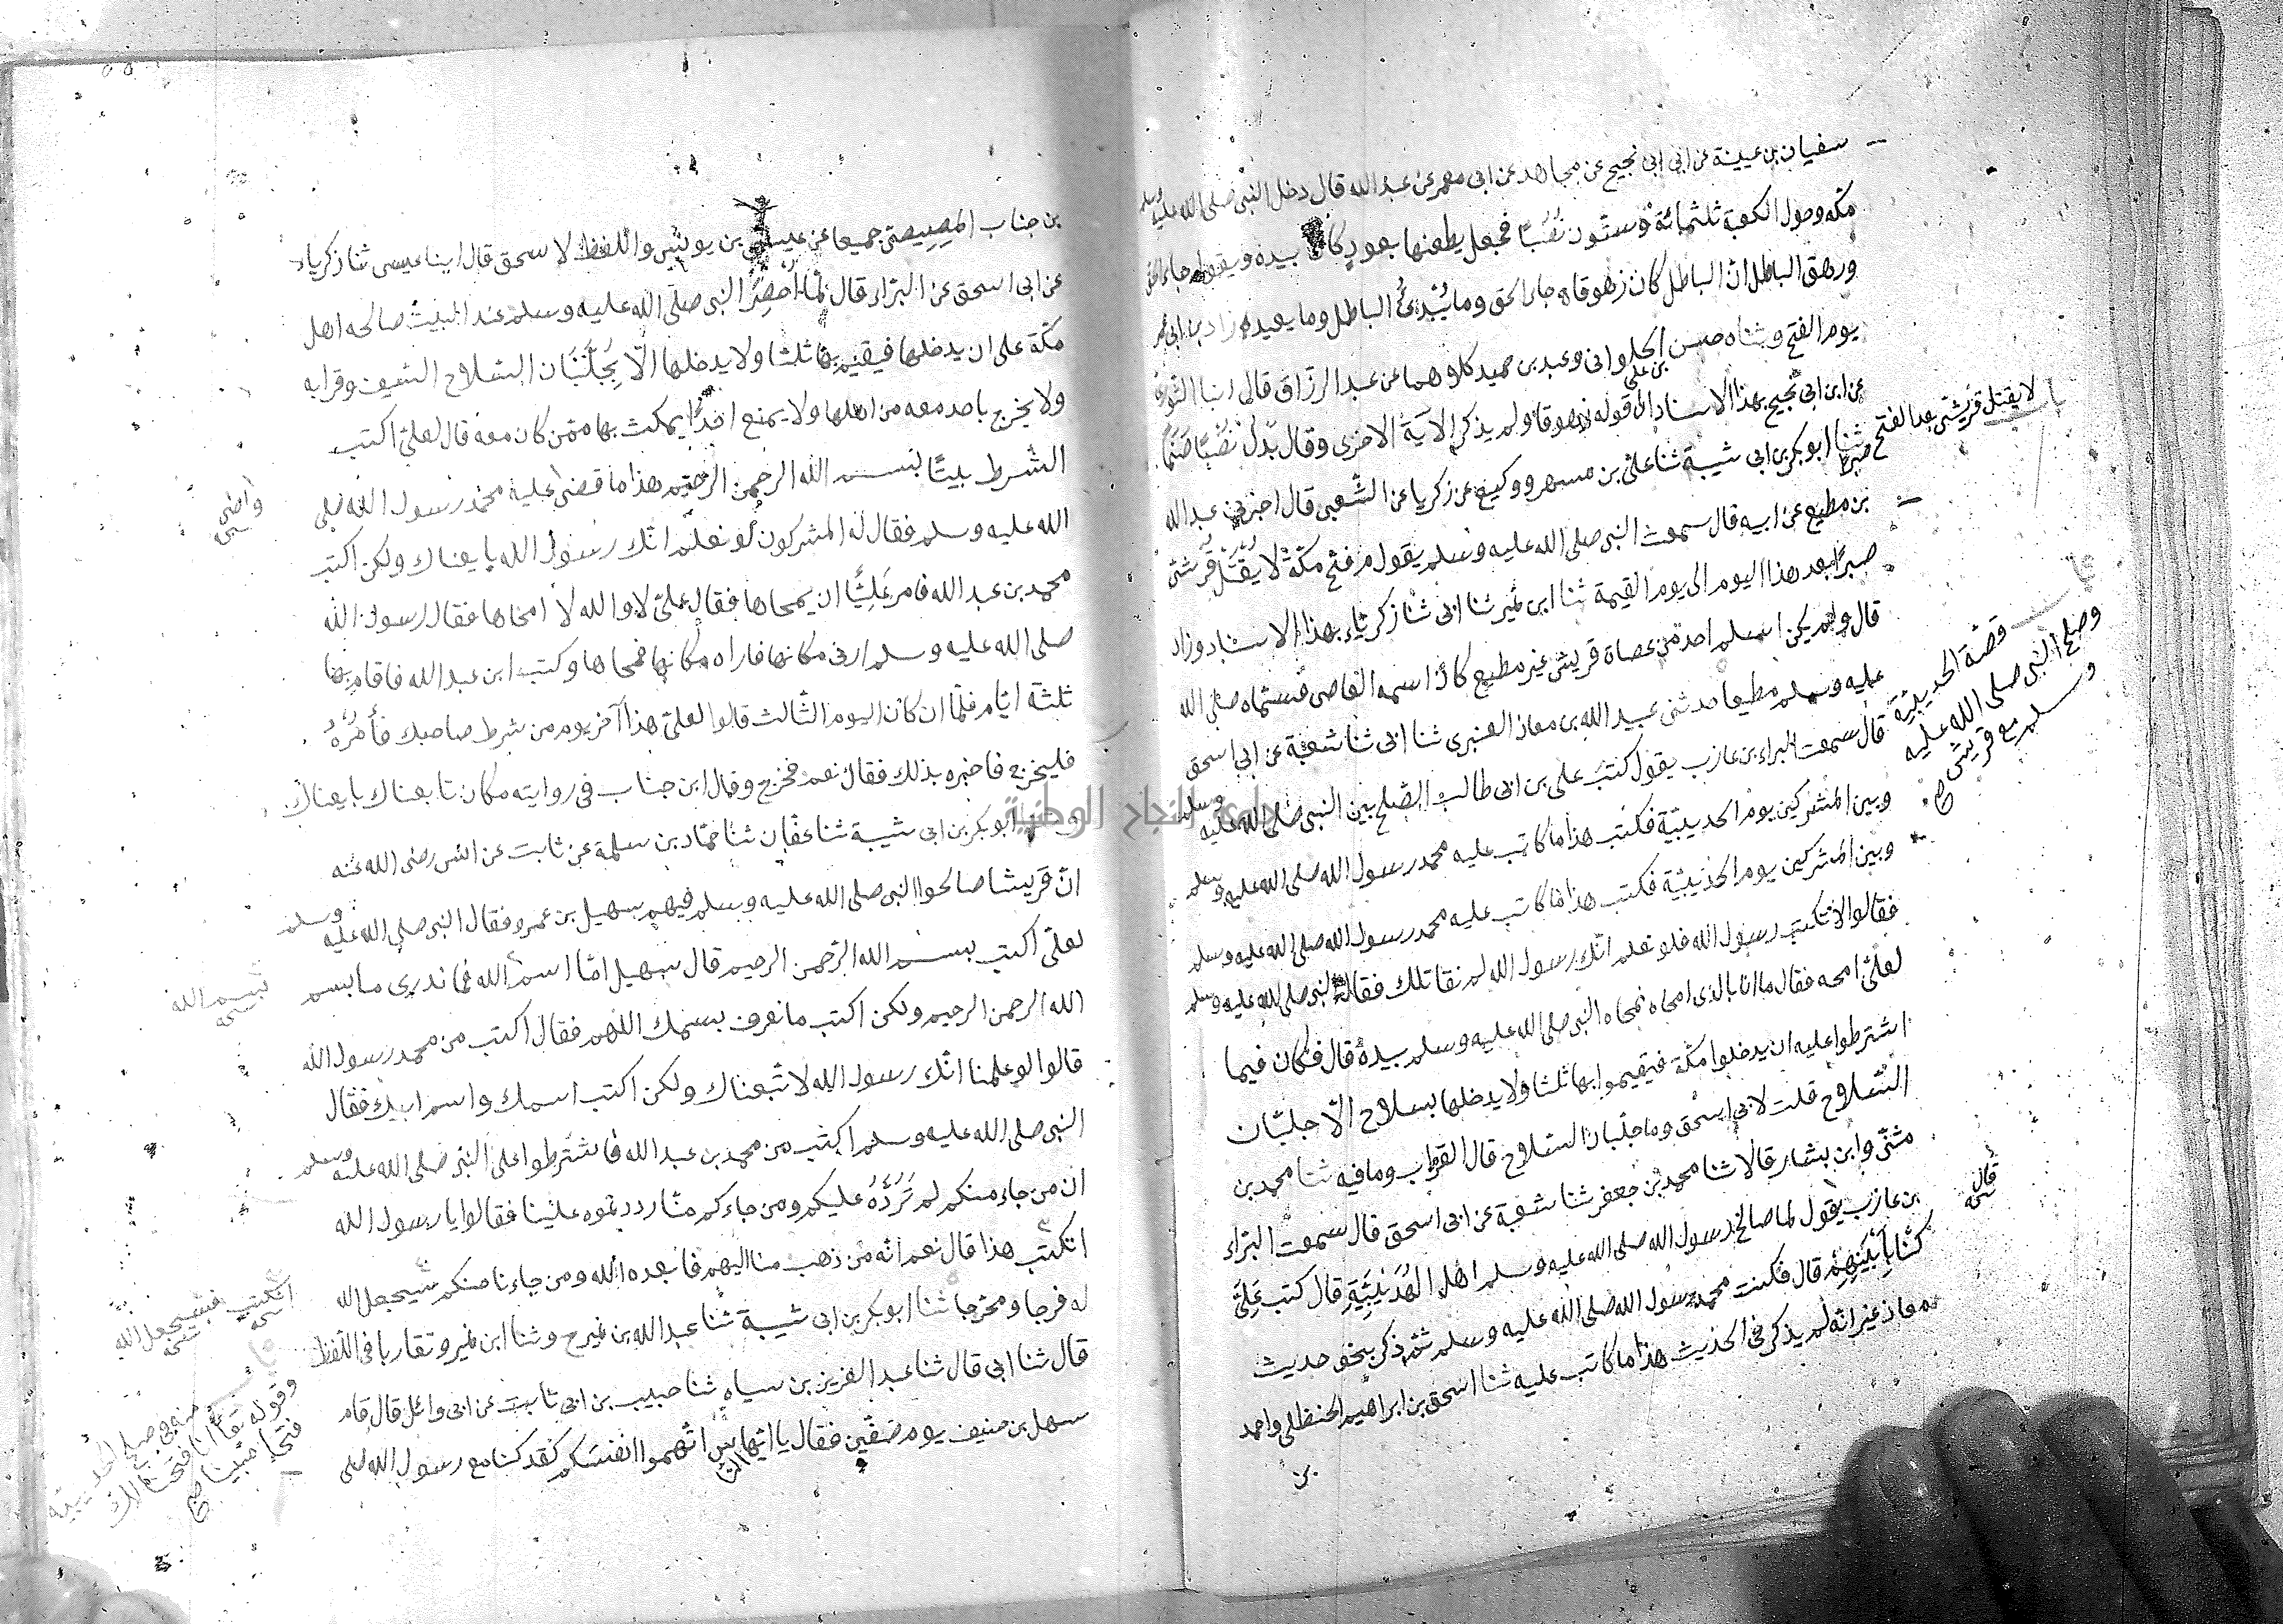 سفيان بن عيينة عن ابن ابى نجيح عن مجاهد عن ابى معمر عن عبد الله قال دخل النبى صلى الله عليه وسلم
مكة وحول الكعبة ثلثمائة وستون نصبا فجعل يطعنها بعود كان بيده ويقول جاء الحق
وزهق الباطل ان الباطل كان زهوقا جاء الحق وما يبدئ الباطل وما يعيد زاد ابن ابى عمر
يوم الفتح وثناه حسن بن على الحلوانى وعبد بن حميد كلاهما عن عبد الرزاق قال ابنا الثورى
عن ابن ابى نجيح بهذا الاسناد الى قوله زهوقا ولم يذكر الاية الاخرى وقال بدل نصبا صنما
باب لا يقتل قرشى بعد الفتح صبرا
ثنا ابو بكر بن ابى شيبة ثنا على بن مسهر ووكيع عن زكريا عن الشعبى قال اخبرنى عبد الله
بن مطيع عن ابيه قال سمعت النبى صلى الله عليه وسلم يقول يوم فتح مكة لا يقتل قرشى
صبرا بعد هذا اليوم الى يوم القيمة ثنا ابن نمير ثنا ابى ثنا زكرياء بهذا الاسناد وزاد
قال ولم يكن اسلم احد من عصاة قريش غير مطيع كان اسمه العاصى فسماه صلى الله
عليه وسلم مطيعا حدثنى عبيد الله بن معاذ العنبرى ثنا ابى ثنا شعبة عن ابى اسحق
باب قصة الحديبية
وصلح النبى صلى الله عليه
وسلم مع قريش
قال سمعت البراء بن عازب يقول كتب على بن ابى طالب الصلح بين النبى صلى الله عليه وسلم
وبين المشركين يوم الحديبية فكتب هذا ما كاتب عليه محمد رسول الله صلى الله عليه وسلم
وبين المشركين يوم الحديبية فكتب هذا ما كاتب عليه محمد رسول الله صلى الله عليه وسلم
فقالوا لا تكتب رسول الله فلو نعلم انك رسول الله لم نقاتلك فقال النبى صلى الله عليه وسلم
لعلى امحه فقال ما انا بالذى امحاه فمحاه النبى صلى الله عليه وسلم بيده قال فكان فيما
اشترطوا عليه ان يدخلوا مكة فيقيموا بها ثلثا ولا يدخلها بسلاح الا جلبان
السلاح قلت لابى اسحق وما جلبان السلاح قال القراب وما فيه ثنا محمد بن
مثنى وابن بشار قالا ثنا محمد بن جعفر ثنا شعبة عن ابى اسحق قال سمعت البراء
قال
بن عازب يقول لما صالح رسول الله صلى الله عليه وسلم اهل الحديبية قال كتب على
كتابا بينهم قال فكتب محمد رسول الله صلى الله عليه وسلم ثم ذكر بنحو حديث
معاذ غير انه لم يذكر فى الحديث هذا ما كاتب عليه ثنا اسحق بن ابراهيم الحنظلى واحمد
بن
بن جناب المصيصى جميعا عن عيسى بن يونس واللفظ لاسحق قال ابنا عيسى ثنا زكرياء
عن ابى اسحق عن البراء قال لما احصر النبى صلى الله عليه وسلم عند البيت صالحه اهل
مكة على ان يدخلها فيقيم بها ثلثا ولا يدخلها الا بجلبان السلاح السيف وقرابه
ولا يخرج باحد معه من اهلها ولا يمنع احدا يمكث بها ممن كان معه قال لعلى اكتب
الشرط بيننا بسم الله الرحمن الرحيم هذا ما قضى عليه محمد رسول الله صلى
الله عليه وسلم فقال له المشركون لو نعلم انك رسول الله بايعناك ولكن اكتب
محمد بن عبد الله فامر عليا ان يمحاها فقال على لا والله لا امحاها فقال رسول الله
صلى الله عليه وسلم ارنى مكانها فاراه مكانها فمحاها وكتب ابن عبد الله فاقام بها
ثلثة ايام فلما ان كان اليوم الثالث قالوا لعلى هذا آخر يوم من شرط صاحبك فأمره
فليخرج فاخبره بذلك فقال نعم فخرج وقال ابن جناب فى روايته مكان تابعناك بايعناك
ابو بكر بن ابى شيبة ثنا عفان ثنا حماد بن سلمة عن ثابت عن انس رضى الله عنه
ان قريشا صالحوا النبى صلى الله عليه وسلم فيهم سهيل بن عمرو فقال النبى صلى الله عليه وسلم
لعلى اكتب بسم الله الرحمن الرحيم قال سهيل اما اسم الله فما ندرى ما بسم
بسم الله
الله الرحمن الرحيم ولكن اكتب ما نعرف بسمك اللهم فقال اكتب من محمد رسول الله
قالوا لو علمنا انك رسول الله لاتبعناك ولكن اكتب اسمك واسم ابيك فقال
النبى صلى الله عليه وسلم اكتب من محمد بن عبد الله فاشترطوا على النبى صلى الله عليه وسلم
ان من جاء منكم لم نرده عليكم ومن جاءكم منا رددتموه علينا فقالوا يا رسول الله
انكتب هذا قال نعم انه من ذهب منا اليهم فابعده الله ومن جاءنا منهم سيجعل الله
انكتب فسيجعل الله
له فرجا ومخرجا ثنا ابو بكر بن ابى شيبة ثنا عبد الله بن نمير ح وثنا ابن نمير وتقاربا فى اللفظ
قال ثنا ابى قال ثنا عبد العزيز بن سياه ثنا حبيب بن ابى ثابت عن ابى وائل قال قام
سهل بن حنيف يوم صفين فقال يا ايها الناس اتهموا انفسكم لقد كنا مع رسول الله صلى
باب منه فى صلح الحديبية
وقوله تعا انا فتحنا لك
فتحا مبينا
النجاح الوطنية